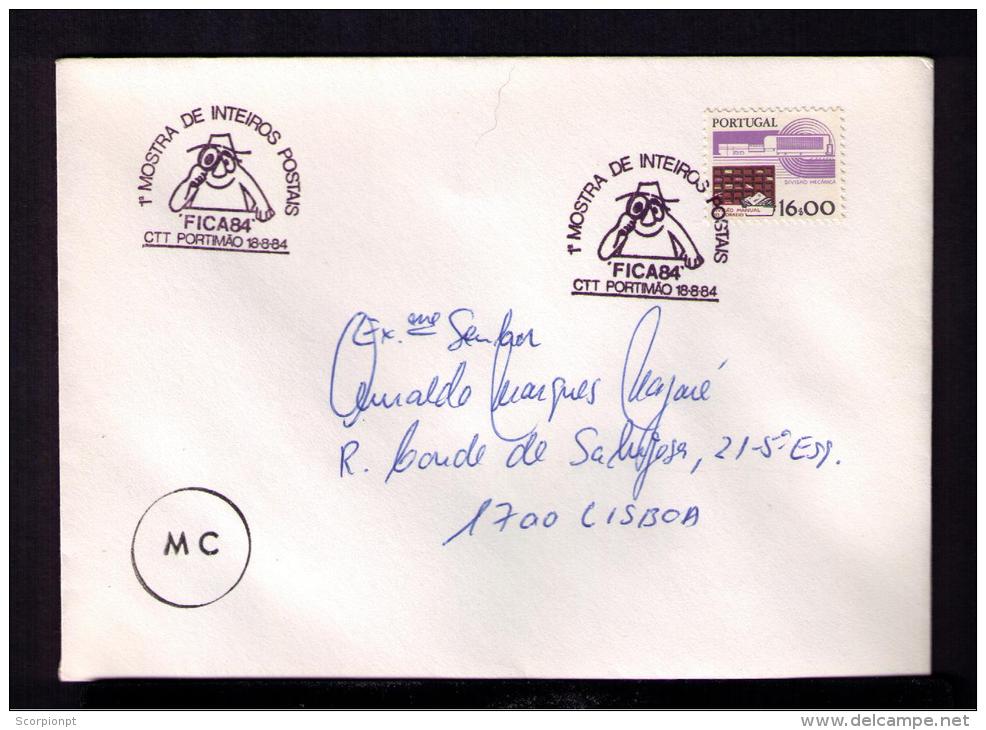 1ª MOSTRA DE INTEIROS POSTAIS
'FICA84'
CTT PORTIMÃO 18·8·84
1ª MOSTRA DE INTEIROS POSTAIS
'FICA84'
CTT PORTIMÃO 18·8·84
PORTUGAL
DIVISÃO MECÂNICA
MANUAL
16$00
Ex.mo Senhor
Marques
R. Conde de Sabugosa, 21-5º Esq.
1700 LISBOA
MC
Scorpionpt
http://www.delcampe.net